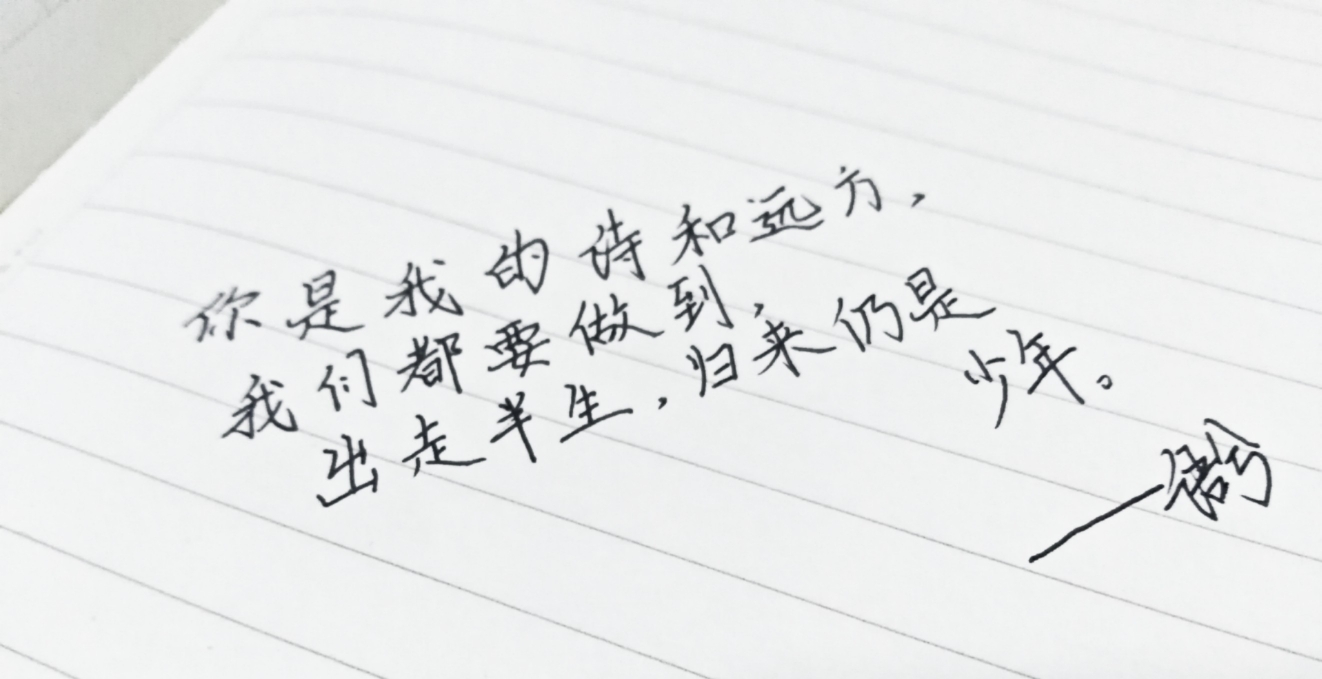 你是我的诗和远方，
我们都要做到，
出走半生，归来仍是
少年。
——